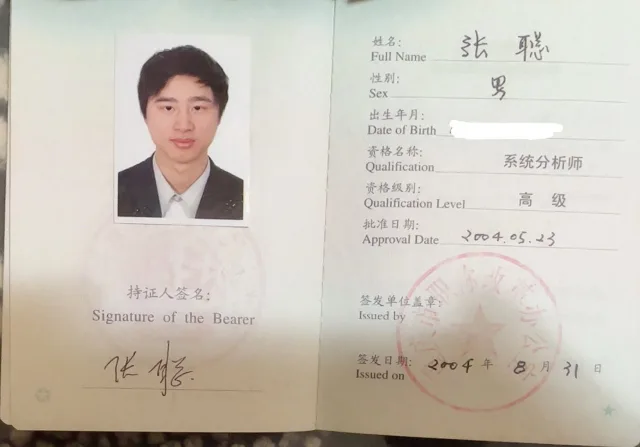 持证人签名:
Signature of the Bearer
张聪
姓名: 张聪
Full Name
性别: 男
Sex
出生年月:
Date of Birth
资格名称: 系统分析师
Qualification
资格级别: 高 级
Qualification Level
批准日期: 2004.05.23
Approval Date
签发单位盖章:
Issued by
签发日期: 2004 年 8 月 31 日
Issued on